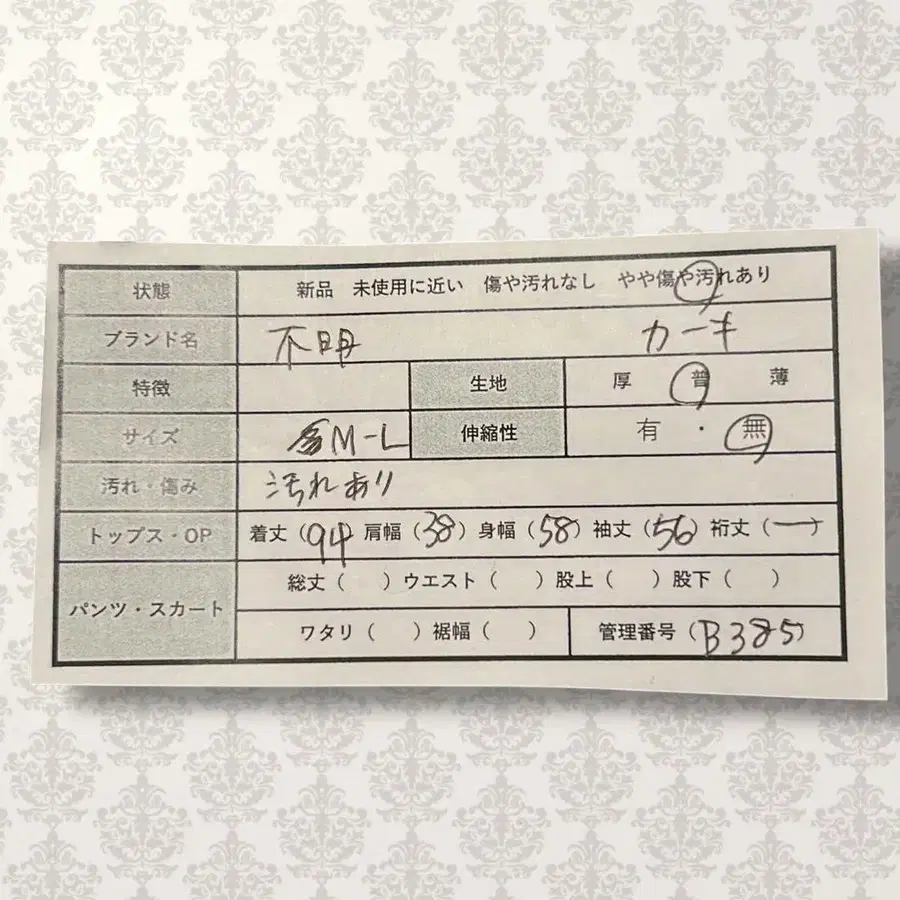 状態 新品 未使用に近い 傷や汚れなし やや傷や汚れあり
ブランド名 不明 カーキ
特徴 生地 厚 普 薄
サイズ M-L 伸縮性 有 ・ 無
汚れ・傷み 汚れあり
トップス・OP 着丈(94) 肩幅(38) 身幅(58) 袖丈(56) 裄丈(ー)
パンツ・スカート 総丈( ) ウエスト( ) 股上( ) 股下( )
ワタリ( ) 裾幅( ) 管理番号(B385)